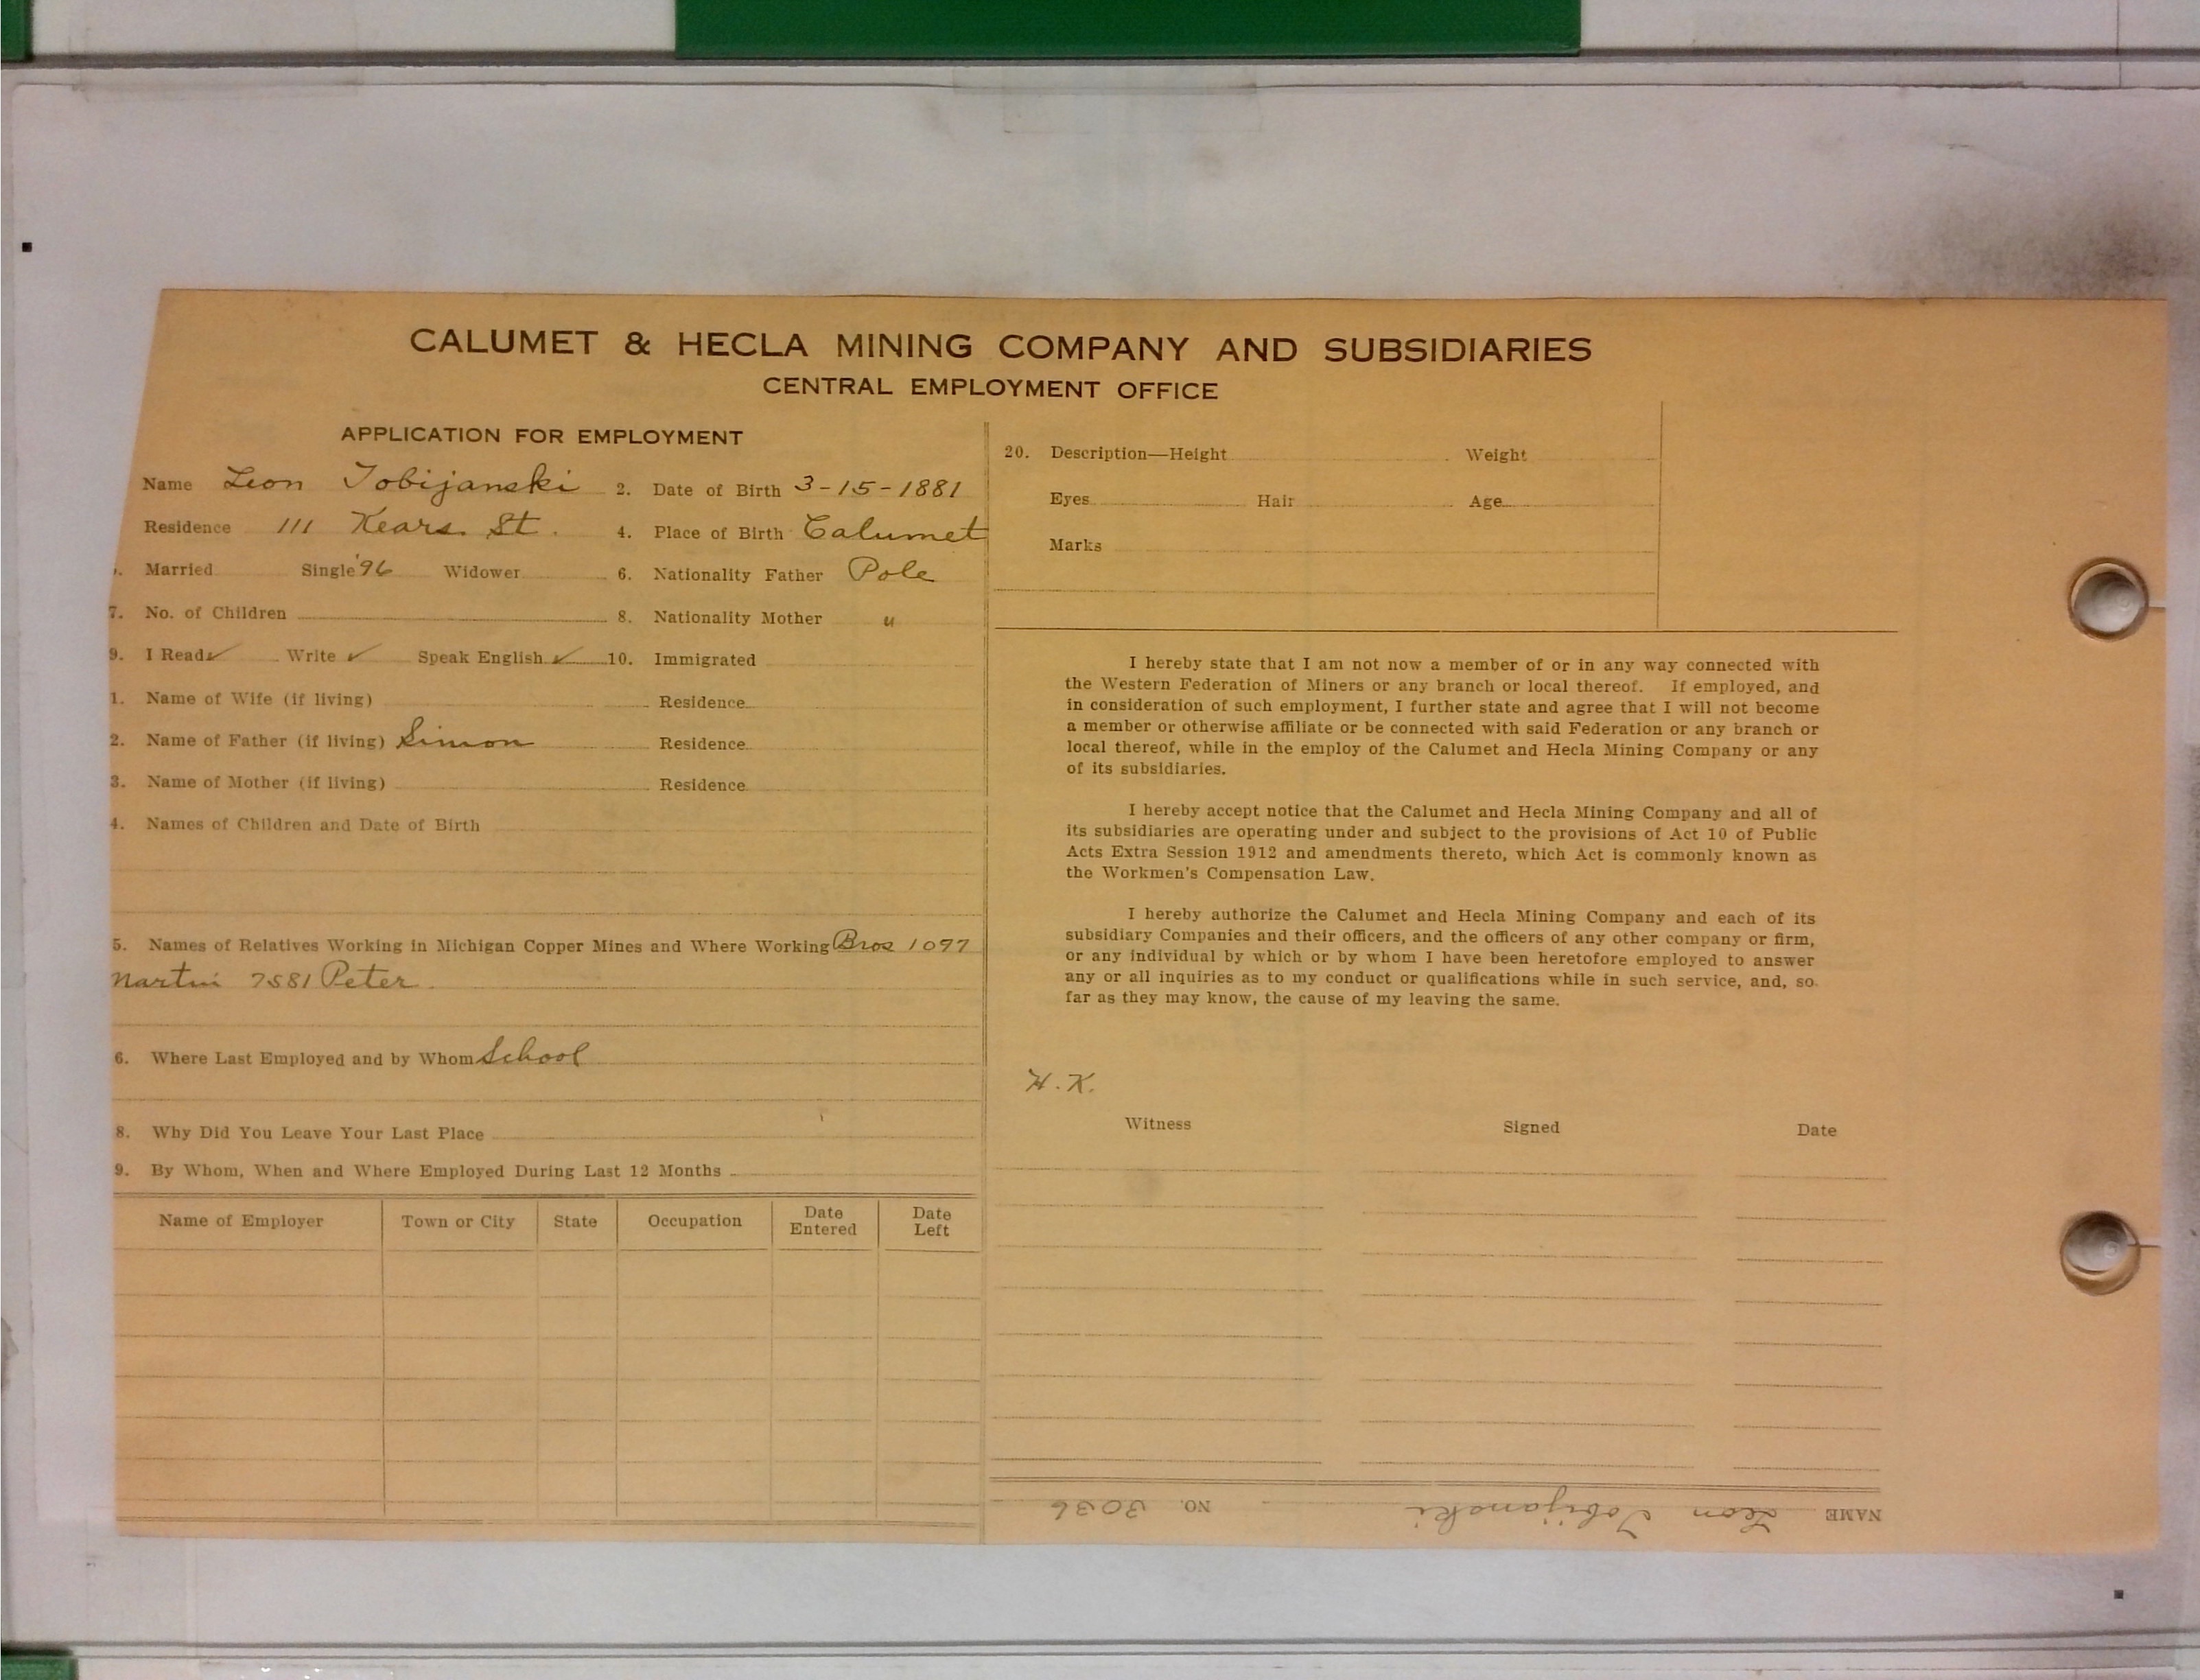 CALUMET & HECLA MINING COMPANY AND SUBSIDIARIES
CENTRAL EMPLOYMENT OFFICE
APPLICATION FOR EMPLOYMENT
Name Leon Tobijanski 2. Date of Birth 3-15-1881
Residence 111 Kears. St. 4. Place of Birth Calumet
Married Single '96 Widower 6. Nationality Father Pole
7. No. of Children 8. Nationality Mother "
9. I Read ✓ Write ✓ Speak English ✓ 10. Immigrated
1. Name of Wife (if living) Residence
2. Name of Father (if living) Simon Residence
3. Name of Mother (if living) Residence
4. Names of Children and Date of Birth
5. Names of Relatives Working in Michigan Copper Mines and Where Working Bros 1097
Martin 7581 Peter.
6. Where Last Employed and by Whom School
8. Why Did You Leave Your Last Place
9. By Whom, When and Where Employed During Last 12 Months
Name of Employer Town or City State Occupation Date Entered Date Left
20. Description—Height Weight
Eyes Hair Age
Marks
I hereby state that I am not now a member of or in any way connected with
the Western Federation of Miners or any branch or local thereof. If employed, and
in consideration of such employment, I further state and agree that I will not become
a member or otherwise affiliate or be connected with said Federation or any branch or
local thereof, while in the employ of the Calumet and Hecla Mining Company or any
of its subsidiaries.
I hereby accept notice that the Calumet and Hecla Mining Company and all of
its subsidiaries are operating under and subject to the provisions of Act 10 of Public
Acts Extra Session 1912 and amendments thereto, which Act is commonly known as
the Workmen's Compensation Law.
I hereby authorize the Calumet and Hecla Mining Company and each of its
subsidiary Companies and their officers, and the officers of any other company or firm,
or any individual by which or by whom I have been heretofore employed to answer
any or all inquiries as to my conduct or qualifications while in such service, and, so
far as they may know, the cause of my leaving the same.
H.K.
Witness Signed Date
NAME Leon Tobijanski NO. 3036